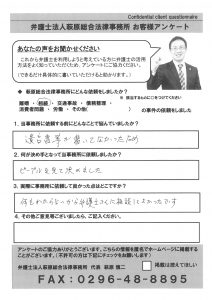 Confidential client questionnaire
弁護士法人萩原総合法律事務所 お客様アンケート
あなたの声をお聞かせください
これから弁護士を利用しようと考えている方に弁護士の活用
方法をよく知っていただくため、アンケートにご協力ください。
(できるだけ具体的に書いていただけると助かります。)
◆ 萩原総合法律事務所にどんな依頼をしましたか?
離婚・相続・交通事故・債務整理・
消費者問題・労働・その他(
)の事件の依頼をしました。
1. 当事務所に依頼する前にどんなことで悩んでいましたか?
遺言書等が書いてなかったため
2. 何が決め手となって当事務所に依頼しましたか?
を見て決めました
3. 実際に事務所に依頼して良かった点はどこですか?
何もわからないから弁護士さんに相談してよかったです
4. その他ご意見等ございましたら、ご記入ください。
アンケートのご協力ありがとうございます。こちらの情報を匿名でホームページに掲載する
ことがございます。(不許可の方は下記にチェックをお願いします)
弁護士法人萩原総合法律事務所 代表 萩原 慎二
掲載は控えてほしい
FAX:0296-48-8807